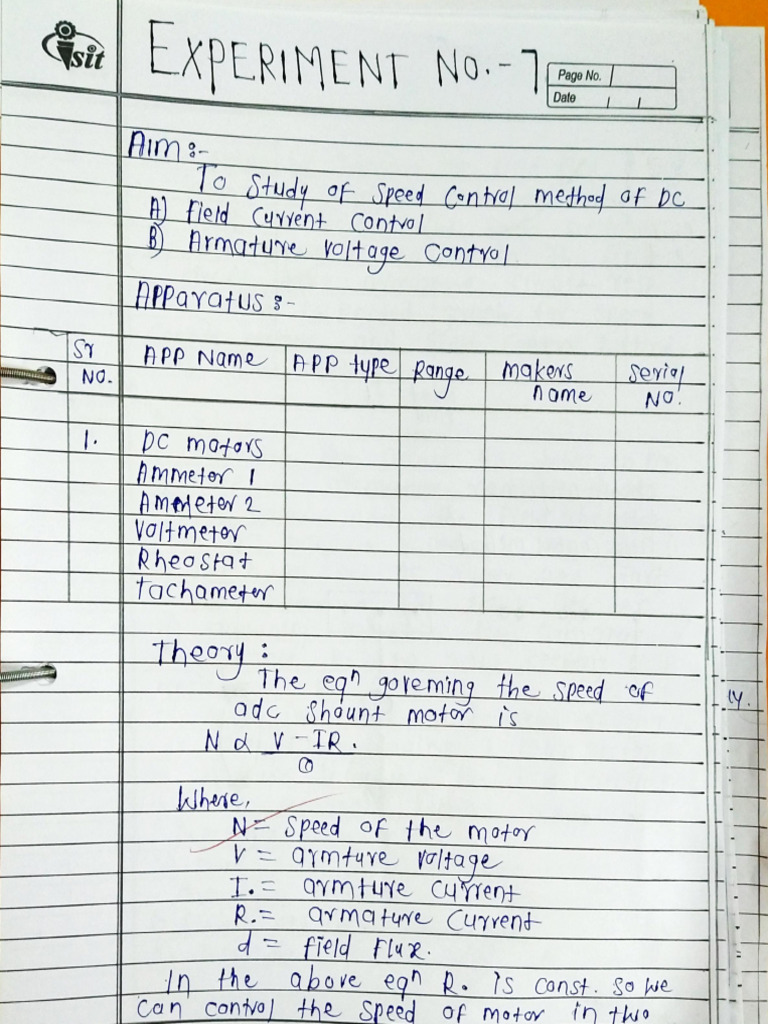 isit
EXPERIMENT NO.-7
Page No.
Date
Aim:-
To study of speed control method of DC
A) field current control
B) Armature voltage control
Apparatus:-
Sr NO. APP Name APP type Range makers name serial NO.
1. DC motors
Ammeter 1
Ammeter 2
Voltmeter
Rheostat
Tachameter
Theory:
The eqn goveming the speed of
adc shount motor is
N α V-IR.
Φ
Where,
N = speed of the motor
V = armture voltage
I. = armture current
R. = armature current
d = field flux.
In the above eqn R. is const. so we
can control the speed of motor in two